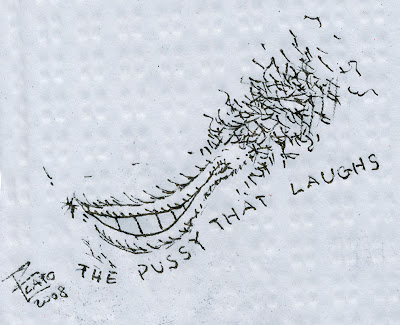 THE PUSSY THAT LAUGHS
2008